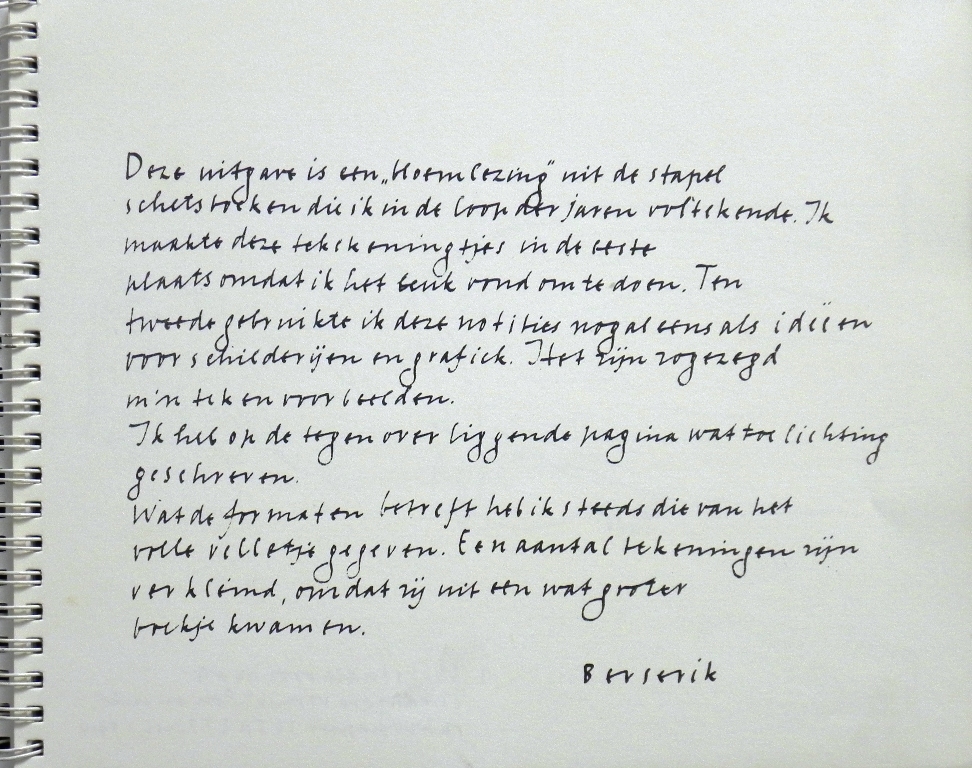 Deze uitgave is een „bloemlezing" uit de stapel
schetsboeken die ik in de loop der jaren voltekende. Ik
maakte deze tekskeningtjes in de eeste
plaats omdat ik het leuk vond om te doen. Ten
tweede gebruikte ik deze notities nogal eens als ideïen
voor schilderijen en grafiek. Het zijn zogezegd
m'n teken voorbeelden.
Ik heb op de tegenoverliggende pagina wat toelichting
geschreven.
Wat de formaten betreft heb ik steeds die van het
volle velletje gegeven. Een aantal tekeningen zijn
verkleind, omdat zij uit een wat groter
boekje kwamen.
Berserik